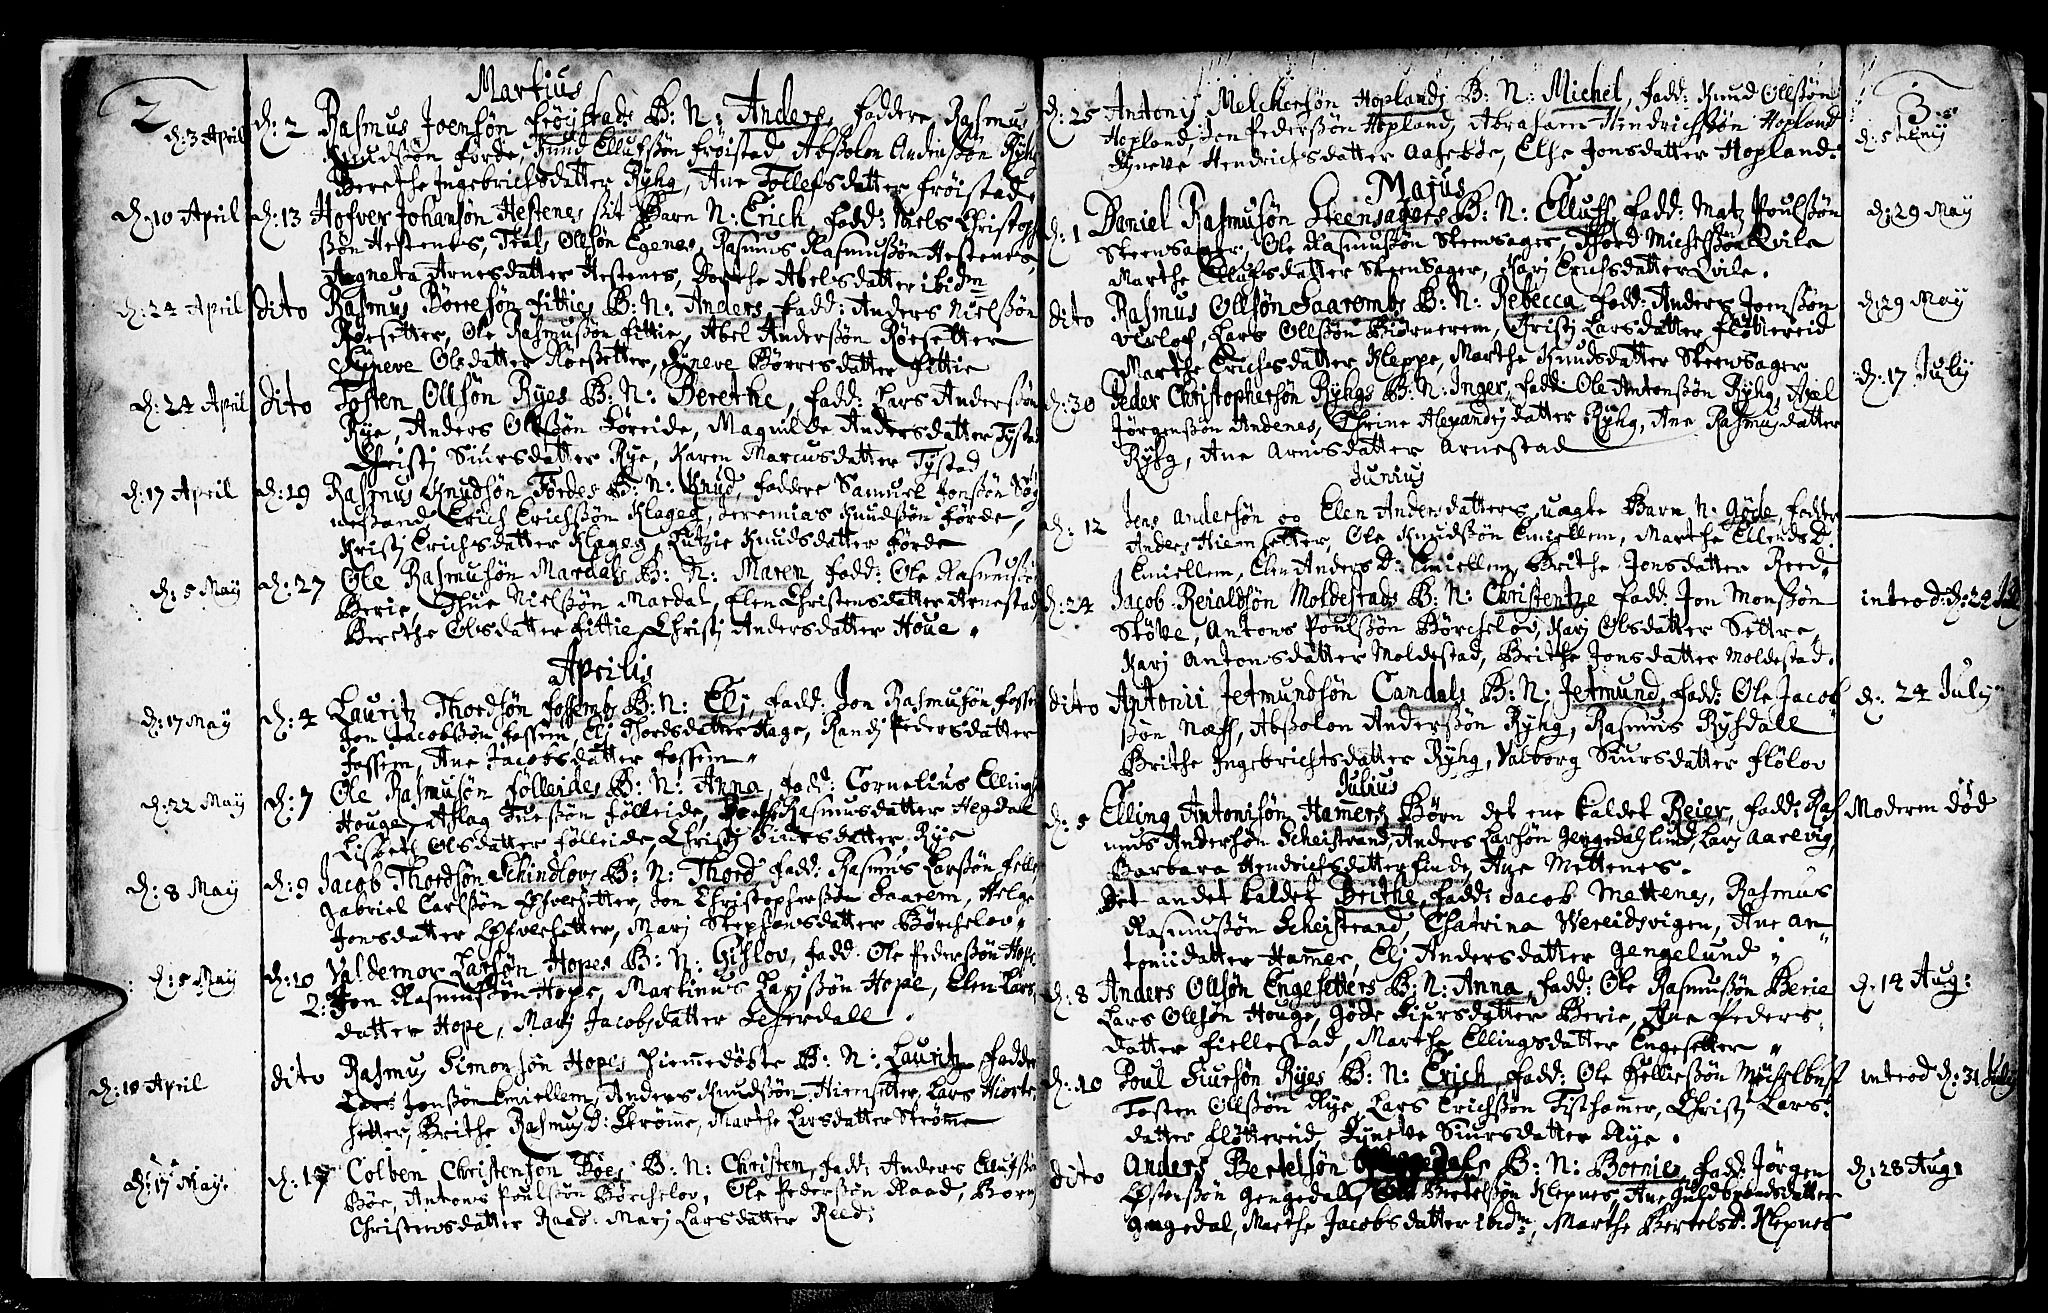 2
Martius
d: 3 April d: 2 Rasmus Joensön fröystads B: N: Anders, faddere Rasmus
Knudssön förde, Knud Ellufssön fröistad, Abssolon Andersson Ryhg
Berethe Ingebrichsdatter Ryhg, Ane Tollefsdatter fröistad
d: 10 April d: 13 Hofver Johansön Hestenes sit Barn N: Erich, fadd: Niels Christoph
ssön Hestenes, Teal Ollsön Egenes, Rasmus Rasmussön Hestenes,
Agneta Arnesdatter Hestenes, Dorthe Abelsdatter ibidm
d: 24 April dito Rasmus Börresön fitties B: N: Anders, fadd: Anders Nielssön
Röesetter, Ole Rasmussön fittie, Abel Anderssön Röesetter
Syneve Olsdatter Röesetter, Syneve Börresdatter fittie
d: 24 April dito Tosten Ollsön Ryes B: N: Berethe, fadd: Lars Anderssön
Rye, Anders Ollssön Föreide, Magnilde Andersdatter Tystad
Christj Siursdatter Rye, Karen Marcusdatter Tystad
d: 17 April d: 19 Rasmus Knudsön Fördes B: N: Knud, faddere Samuel Jonssön Sög
nesand, Erich Erichssön Klageg, Jeremias Knudssön förde,
Kristj Erichsdatter Klageg, Lutzie Knudsdatter förde
d: 5 May d: 27 Ole Rasmusön Mardals B: N: Maren, fadd: Ole Rasmussön
Berie, Thue Nielssön Mardal, Elen Christensdatter Arnestad,
Berethe Olsdatter fittie, Christj Andersdatter Houe.
Aprilis
d: 17 May d: 4 Lauritz Thordsön fossemb B: N: Elj, fadd: Jon Rasmusön fossem
Jon Jacobssön fossem, Elj Thordsdatter Hage, Randj Pedersdatter
fossem, Ane Jacobsdatter fossem
d: 22 May d: 7 Ole Rasmusön fölleides B: N: Anna, fadd: Cornelius Ellings
Houge, Aslag Tuessön fölleide, Rasmusdatter Hegdal
Lisbeth Olsdatter fölleide, Christj Siursdatter Rye
d: 8 May d: 9 Jacob Thordsön Schindlovs B: N: Thord fadd: Rasmus Larssön felle
Gabriel Carlssön Ofversetter, Jon Christopherssön Saarem, Helge
Jonsdatter Ofversetter, Marj Stephansdatter Börchelov
d: 5 May d: 10 Valdemor Larsön Hopes B: N: Gislov, fadd: Ole Pederssön Hope
2: Jon Rasmussön Hope, Martinus Larssön Hope, Elen Lars
datter Hope, Marj Jacobsdatter Leferdall
d: 18 April dito Rasmus Simonsön Hopes hiemedöbte B: N: Lauritz, fadder
Lars Jonssön Emiellem, Anders Knudssön Hiemsetter, Lars Hiorte
setter, Brithe Rasmus D: Strömme, Marthe Larsdatter Strömme
d: 17 May d: 17 Colben Christensön Böes B: N: Christen, fadd: Anders Ellufssön
Böe, Antons Poulssön Börchelov, Ole Pederssön Raad, Bornj
Christensdatter Raad, Marj Larsdatter Reed;
3
d: 25 Antonis Melchersön Hoplands B: N: Michel, fadd: Knud Ollssön d: 5 Juny
Hopland, Jon Pederssön Hopland, Abraham Hindrichssön Hopland
Syneve Hendrichsdatter Aasebøe, Else Jonsdatter Hopland
Majus
d: 1 Daniel Rasmusön Steensagers B: N: Elluff, fadd: Matz Poulssön d: 29 May
Steensager, Ole Rasmussön Steensager, Thord Michelssön Qvile
Marthe Ellufsdatter Steensager, Karj Erichsdatter Qvile.
dito Rasmus Ollsön Saarembs B: N: Rebecca fadd: Anders Joenssön d: 29 May
Verlof, Lars Ollssön Biörnerem, Christj Larsdatter flöttereid
Marthe Erichsdatter Kleppe, Marthe Knudsdatter Steensager
d: 30 Peder Christophersön Ryhgs B: N: Inger, fadd: Ole Antonssön Ryhg, Axel d: 17 July
Jörgenssön Andenes, Thrine Alexandersdatter Ryhg, Ane Rasmusdatter
Ryhg, Ane Arnesdatter Arnestad
Junius
d: 12 Jens Andersön og Elen Andersdatters uægte Barn N: Göde, fadder
Anders Hiemsetter, Ole Knudssön Emiellem, Marthe Ellends D:
Emiellem, Elen Anders D: Emiellem, Brithe Jonsdatter Reed
d: 24 Jacob Reialdsön Moldestads B: N: Christentze fadd: Jon Monssön introd: d: 22 July
Stöve, Antons Poulssön Börchelov, Karj Olsdatter Settre,
Karj Antonsdatter Moldestad, Brithe Jonsdatter Moldestad.
dito Antonii Jetmundsön Candals B: N: Jetmund, fadd: Ole Jacob d: 24 July
ssön Næss, Abssolon Anderssön Ryhg, Rasmus Rysdall
Brithe Ingebrichtsdatter Ryhg, Valborg Siursdatter flölov
Julius
d: 5 Elling Antonisön Hamers Börn det ene kaldet Reier, fadd: Ras Moderen död
mus Andersön Scheistrand, Anders Larssön Gengedal, Lars Aarevig,
Barbara Hendrichsdatter finde, Ane Mettenes.
Det andet kaldet Brithe, fadd: Jacob Mettenes, Rasmus
Rasmussön Scheistrand, Chatrina Wereidsvigen, Ane An
toniidatter Hamer, Elj Andersdatter Gengelund
d: 8 Anders Ollsön Engesetters B: N: Anna, fadd: Ole Rasmussön Berie d: 14 Aug:
Lars Ollssön Houge, Göde Siursdatter Berie, Ane Peders
datter fiellestad, Marthe Ellingsdatter Engesetter
d: 10 Poul Siursön Ryes B: N: Erich, fadd: Ole Helliessön Muchelbust introd d: 31 July
Tosten Ollssön Rye, Lars Erichssön Tisthamer, Christj Lars
datter flöttereid, Syneve Siursdatter Rye.
dito Anders Bertelsön B: N: Bornie, fadd: Jörgen d: 28 Aug:
Gengedal, Bertelssön Klepnes, Ane Guldbrandsdatter
Gengedal, Marthe Jacobsdatter ibidm, Marthe Bertels D: Klepnes